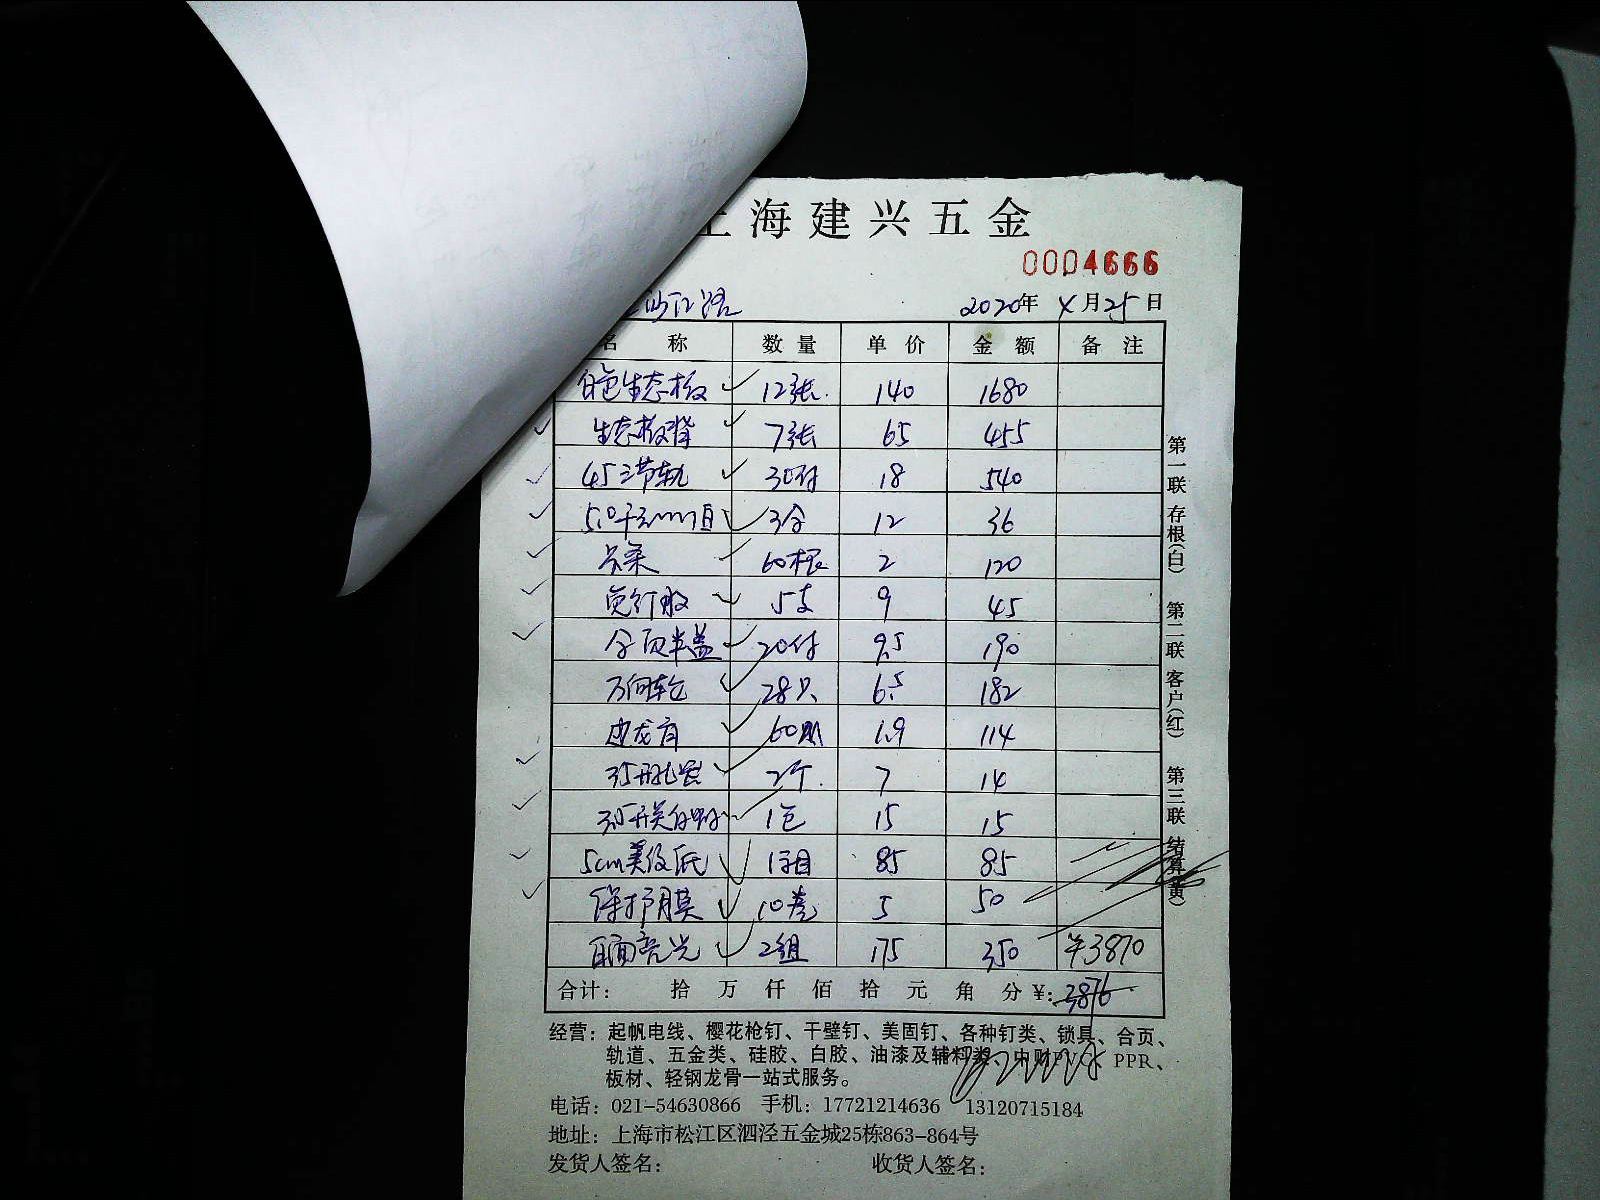 上海建兴五金
0004666
沙江路 2020年 4月25日
名 称 数 量 单 价 金 额 备 注
白色生态板 12张. 140 1680
生态板背 7张 65 455
45三节轨 30付 18 540
3合 12 36
60根 2 120
免钉胶 5支 9 45
合页半盖 20付 9.5 190
万向轮 28只 6.5 182
60 1.9 114
35开孔器 2个. 7 14
1包 15 15
5cm美纹纸 1箱 85 85
保护膜 10卷 5 50
2组 175 350 ¥3870
合计: 拾 万 仟 佰 拾 元 角 分 ¥: 3876
经营: 起帆电线、樱花枪钉、干壁钉、美固钉、各种钉类、锁具、合页、
轨道、五金类、硅胶、白胶、油漆及辅料类、中财PVC、PPR、
板材、轻钢龙骨一站式服务。
电话: 021-54630866 手机: 17721214636 13120715184
地址: 上海市松江区泗泾五金城25栋863-864号
发货人签名: 收货人签名:
第一联 存根(白) 第二联 客户(红) 第三联 结算(黄)